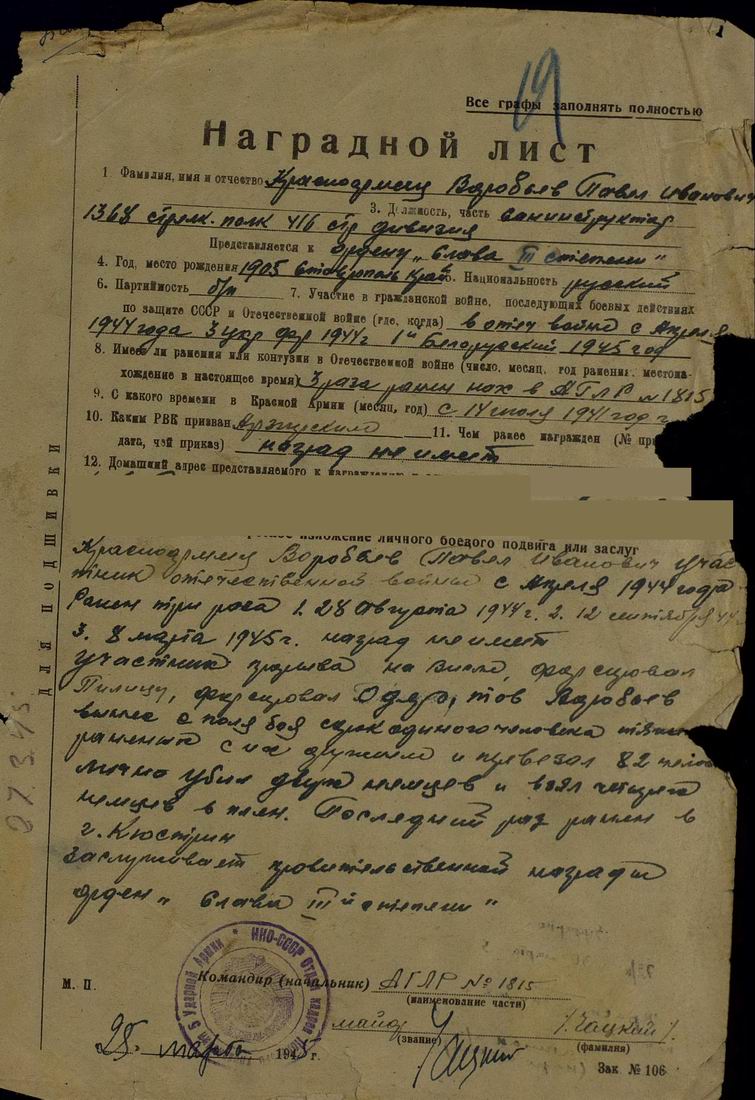 19
1
Все графы заполнять полностью
Наградной лист
1. Фамилия, имя и отчество Красноармеец Воробьев Павел Иванович
3. Должность, часть санинструктор
1368 стрелк. полк 416 стр дивизия
Представляется к ордену "Слава III степени"
4. Год, место рождения 1905 Ставрополь Край 5. Национальность русский
6. Партийность б/п 7. Участие в гражданской войне, последующих боевых действиях
по защите СССР и Отечественной войне (где, когда) в отеч войне с Апреля
1944 года 3 укр фр 1944 г 1й Белоруский 1945 год
8. Имеет ли ранения или контузии в Отечественной войне (число, месяц, год ранения, местона-
хождение в настоящее время) 3 раза ранен нах в АГЛР №1815
9. С какого времени в Красной Армии (месяц, год) с 14 июля 1941 год
10. Каким РВК призван 11. Чем ранее награжден (№
дата, чей приказ) наград не имеет
12. Домашний адрес представляемого к
изложение личного боевого подвига или заслуг
Красноармеец Воробьев Павел Иванович учас
тник отечественной войны с Апреля 1944 года
Ранен три роса 1. 28 Августа 1944 г. 2. 12 сентября 44
3. 8 марта 1945 г. наград не имеет
участник прорыва на Висле, форсировал
Пилицу, форсировал Одер, тов Воробьев
вынес с поля боя сорок одиного человека
ранених с их оружием и превезал 82
лично убил двух немцев и взял четырех
немцев в плен. Последний раз ранен в
г. Кюстрин
Заслуживает провительственной награди
орден "Слава III й степени"
ДЛЯ ПОДШИВКИ
27.3.45
М. П.
Командир (начальник) АГЛР № 1815
(наименование части)
майор /Чацкий/
(звание) (фамилия)
28 марта 1945 г.
Зак. № 106
НКО-СССР Отдел кадров 5 Ударной Армии